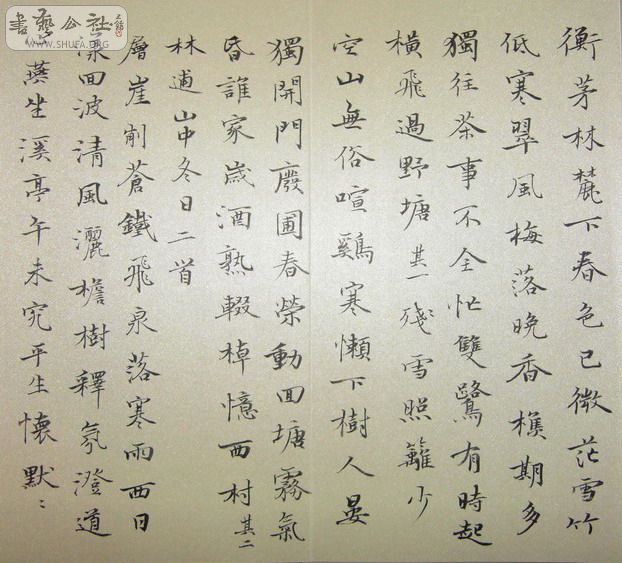 書藝公社
WWW.SHUFA.ORG
衡茅林麓下春色已微茫雪竹
低寒翠風梅落晚香樵期多
獨往茶事不全忙雙鷺有時起
橫飛過野塘其一殘雪照籬少
空山無俗喧鷄寒懶下樹人晏
獨開門廢圃春榮動回塘霧氣
昏誰家歲酒熟輟棹憶西村其二
林逋山中冬日二首
層崖削蒼鐵飛泉落寒雨西日
漾回波清風灑檐樹釋氛澄道
燕坐溪亭午未究平生懷默〻